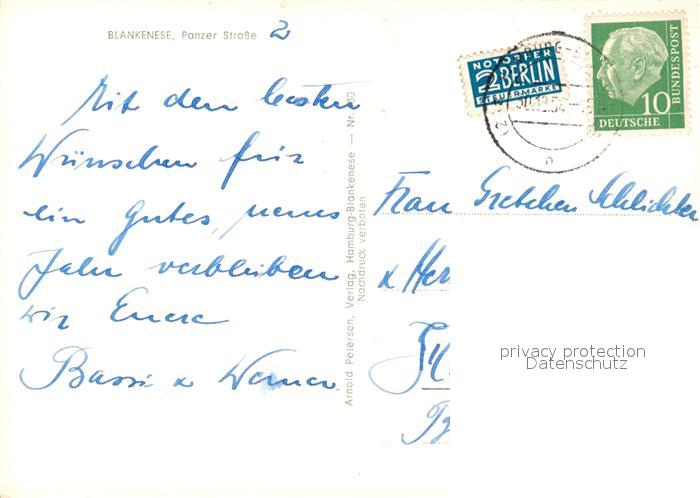 BLANKENESE, Panzer Straße 2
Mit den besten
Wünschen für
ein gutes, neues
Jahr verbleiben
wir Euere
Bassi u Werner.
Arnold Petersen, Verlag, Hamburg-Blankenese — Nr.
Nachdruck verboten
NOTOPFER
2 BERLIN
STEUERMARKE
10
DEUTSCHE
BUNDESPOST
Frau Gretchen Schlichter
u Herr
privacy protection
Datenschutz